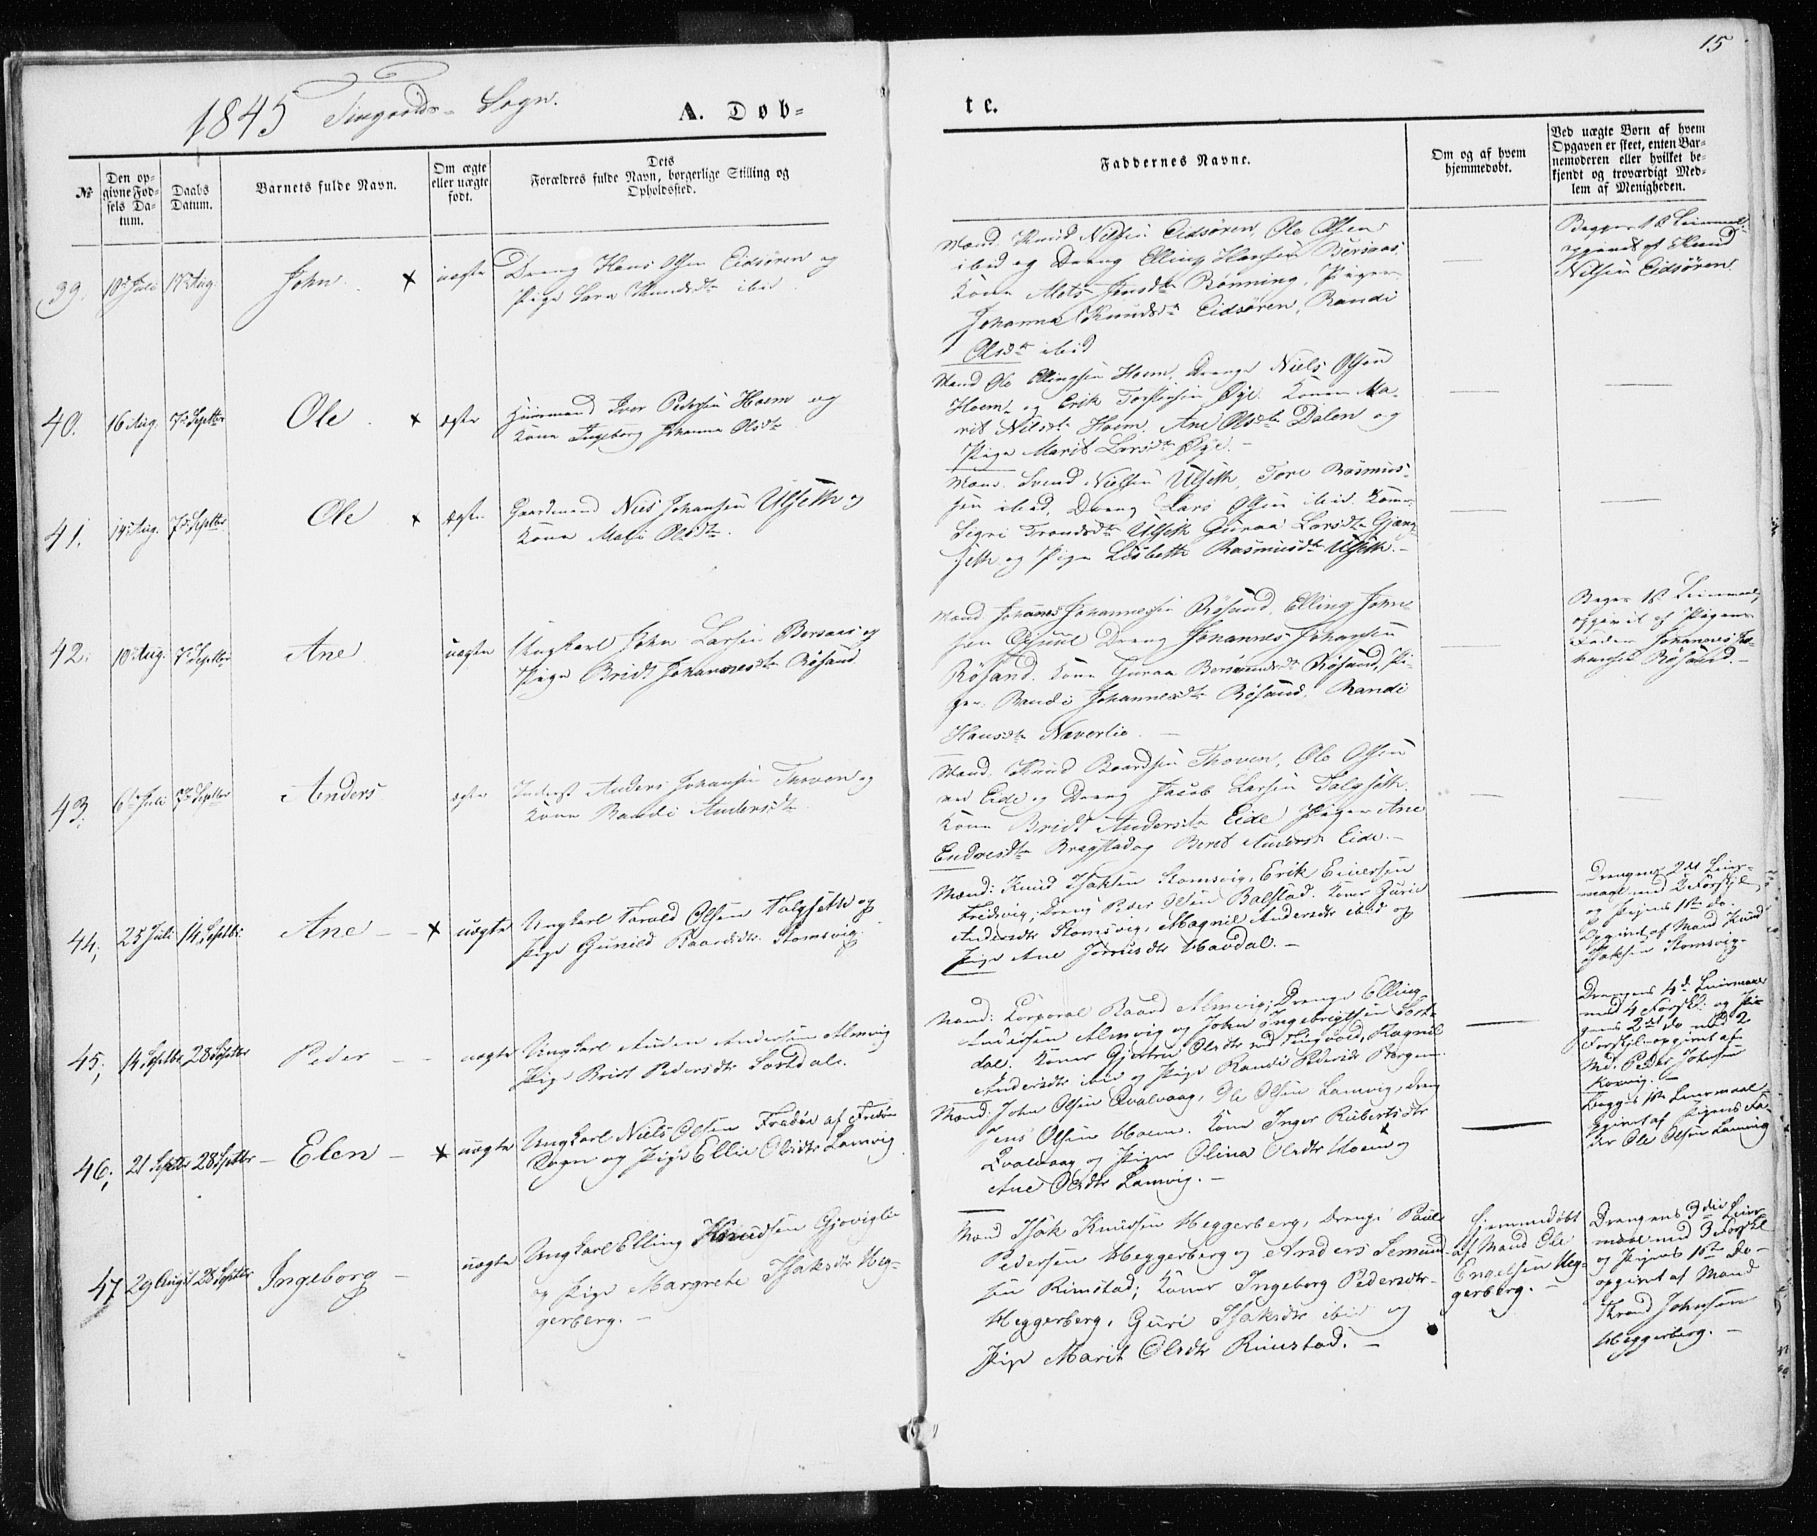 15
1845 Tingvolds Sogn.
A. Døb-
te.
№
Den op-
givne Fød-
sels Da-
tum.
Daabs
Datum.
Barnets fulde Navn.
Om ægte
eller uægte
født.
Dets
Forældres fulde Navn, borgerlige Stilling og
Opholdssted.
Faddernes Navne.
Om og af hvem
hjemmedøbt.
Ved uægte Børn af hvem
Opgaven er skeet, enten Bar-
nemoderen eller hvilket be-
kjendt og troværdigt Med-
lem af Menigheden.
39. 10de Juli 17de Aug. John. × uægte
Dreng Hans Olsen Eidsøren og
Pige Knudsdtr ibid.
Mænd Knud Nilsen Eidsøren, Ole Olsen
ibid og Dreng Elling Hansen Bersaas
Kone Jensdtr Rønning, Piger
Johanna Knudsdtr Eidsøren, Randi
Olsdtr ibid
Begges 1ste Leiermaal
opgivet af Knud
Nilsen Eidsøren.
40. 16 Aug. 7de Septbr Ole × ægte
Huusmand Iver Pedersen Hoem og
Kone Ingeborg Johanna Olsdtr
Mænd Ole Ellingsen Hoem, Drenge Niels Olsen
Hoem og Erik Torstensen Øye. Koner Ma-
rit Nilsdtr Hoem, Ane Olsdtr Dalen og
Pige Marit Larsdtr Øye.
41. 14 Aug. 7de Septbr. Ole × ægte
Gaardmand Nils Johansen Ulseth og
Kone Olsdtr.
Mænd. Svend Nielsen Ulseth, Tore Rasmus-
sen ibid, Dreng Lars Olsen ibid. Koner
Sigri Trondsdtr Ulseth Guraa Larsdtr Gjæng-
seth og Pige Lisbeth Rasmusdtr Ulseth. -
42. 10de Aug. 7de Septbr Ane uægte
Ungkarl John Larsen Bersaas og
Pige Bridt Johannesdtr Røsand.
Mænd Johannes Johannessen Røsand, Elling John-
sen Dreng Johannes Johansen
Røsand. Kone Guraa Røsand, Pi-
ger. Randi Johannesdtr Røsand, Randi
Hansdtr Neverlie. -
Begges 1ste Leiermaal
opgivet af Pigens
Fader Johannes Jo-
hansen Røsand. -
43. 6te Juli 7de Septbr Anders ægte
Inderst Anders Johansen Thoven og
Kone Randi Andersdtr.
Mænd. Knud Baardsen Thoven, Ole Olsen
ved Eide og Dreng Jacob Larsen Talgseth.
Kone Bridt Andersdtr Eide Piger Ane
Endresdtr Bragstad og Beret Andersdtr Eide. -
44, 25 Juli 14, Septbr. Ane - - × uægte
Ungkarl Harald Olsen Talgseth og
Pige Gunild Baardsdtr Stomsvig.
Mænd: Knud Isaksen Stomsvig, Erik Einersen
Fredsvig, Dreng Peder Olsen Balstad. Koner Gurie
Andersdtr Stomsvig, Magnil Andersdtr ibid og
Pige Ane Jonnisdtr Havdal. -
Drengens 2det Leier-
maal med 2 Forskjl.
og Pigens 1ste do.
Opgivet af Mand Knud
Isaksen Stomsvig.
45, 14, Septbr 28 Septbr Peder - - uægte
Ungkarl Andersen Almvig
Pige Brit Pedersdtr Sortdal.
Mænd: Corporal Baard Almvig; Drenge Elling
Andersen Almvig og John Ingebrigtsen Sort-
dal. Koner Gjertru Olsdtr ved Tingvold, Magnil
Andersdtr ibid og Pige Randi Pedersdtr Bergem.
Drengens 4de Leiermaal
med 4 Forskl: og Pi-
gens 2det do med 2
Forskjl. opgivet af
Md. Peder Johnsen
Korsvig. -
46, 21 Septbr 28 Septbr - Elen - × uægte
Ungkarl Niels Olsen Frædøe af Fredøe
Sogn og Pige Ellie Olsdtr Lamvig
Mænd: John Olsen Qvalvaag, Ole Olsen Lamvig, Dreng
Jens Olsen Hoem. Kone Inger Rubertsdtr
Qvalvaag og Piger Olina Olsdtr Hoem og
Ane Olsdtr Lamvig. -
Begges 1ste Leiermaal
opgivet af Pigens Fa-
der Ole Olsen Lamvig
47 29 August 28 Septbr Ingeborg - uægte
Ungkarl Elling Knudsen Gjøviglie
og Pige Margrete Isaksdtr Heg-
gerberg. -
Mænd Isak Knudsen Heggerberg, Drenge Paul
Pedersen Heggerberg og Anders Semund-
sen Rimstad; Koner Ingeborg Pedersdtr
Heggerberg, Guri Isaksdtr ibid og
Pige Marit Olsdtr Rimstad. -
Hjemmedøbt
af Mand Ole
Engelsen Heg-
gerberg. -
Drengens 3die Leier-
maal med 3 Forskl
og Pigens 1ste do -
opgivet af Mand
Trond Johnsen
Heggerberg. -